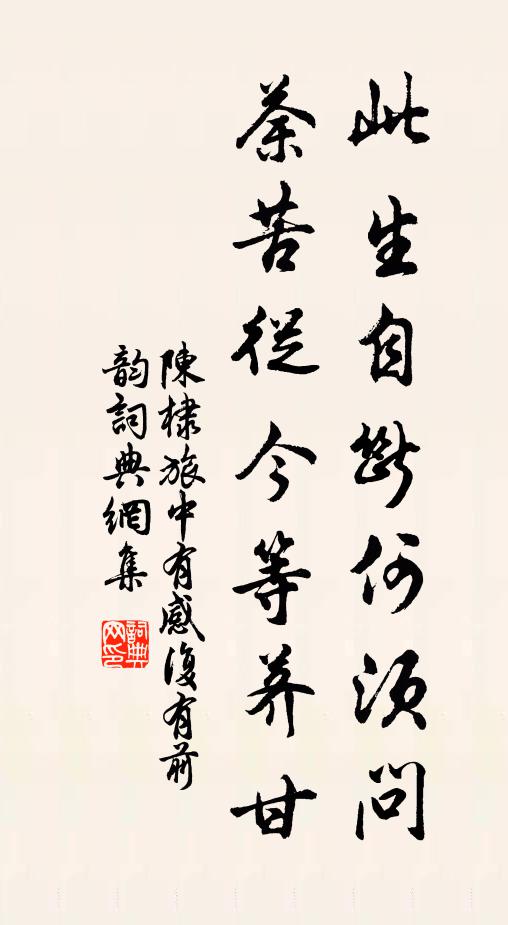 此生自断何須問
荼苦從今等荠甘
陳棣旅中有感復有前
韵詞典網集
詞典网印